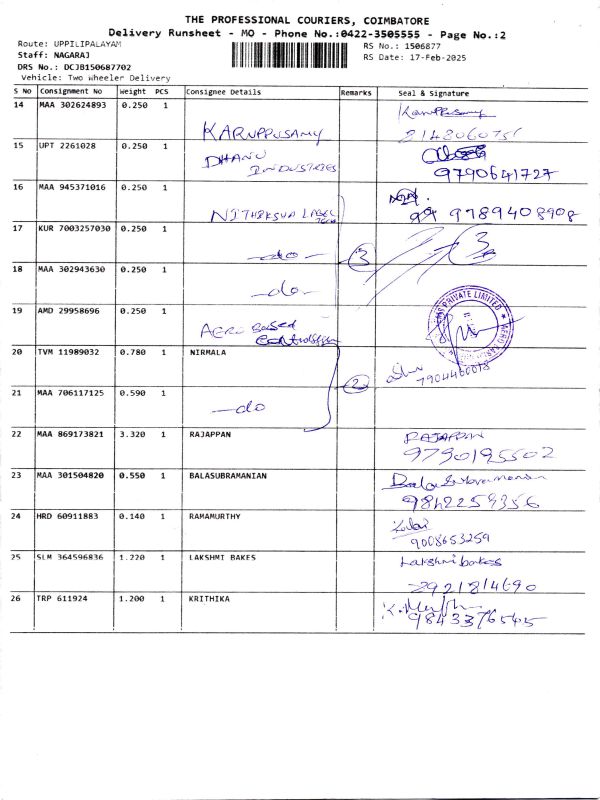 THE PROFESSIONAL COURIERS, COIMBATORE
Delivery Runsheet - MO - Phone No.:0422-3505555 - Page No.:2
Route: UPPILIPALAYAM
RS No.: 1506877
Staff: NAGARAJ
RS Date: 17-Feb-2025
DRS No.: DCJB150687702
Vehicle: Two Wheeler Delivery
S No Consignment No Weight PCS Consignee Details Remarks Seal & Signature
14 MAA 302624893 0.250 1 KARUPPUSAMY Karuppusamy
15 UPT 2261028 0.250 1 DHANU INDUSTRIES 9790641727
16 MAA 945371016 0.250 1 NITHIKSUA LABEL 9789408908
17 KUR 7003257030 0.250 1 -do- 3
18 MAA 302943630 0.250 1 -do-
19 AMD 29958696 0.250 1 AERO Based PRIVATE LIMITED
20 TVM 11989032 0.780 1 NIRMALA 2 7904460018
21 MAA 706117125 0.590 1 -do
22 MAA 869173821 3.320 1 RAJAPPAN RAJAPPAN
9790195502
23 MAA 301504820 0.550 1 BALASUBRAMANIAN Balasubramanian
9842259356
24 HRD 60911883 0.140 1 RAMAMURTHY
9008653259
25 SLM 364596836 1.220 1 LAKSHMI BAKES Lakshmi bakes
26 TRP 611924 1.200 1 KRITHIKA
9843376545